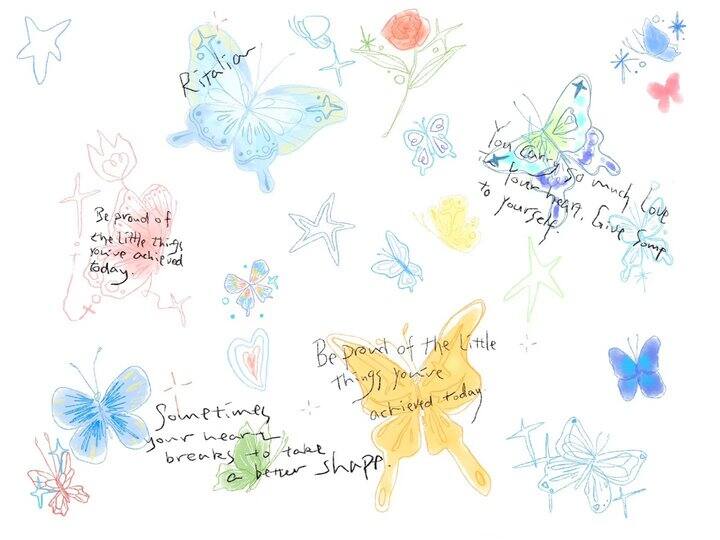 Ritalian
You carry so much love
to your heart. Give some
to yourself.
Be proud of
the little things
you've achieved
today.
Be proud of the little
things you've
achieved today
Sometimes
your heart
breaks to take
a better shape.